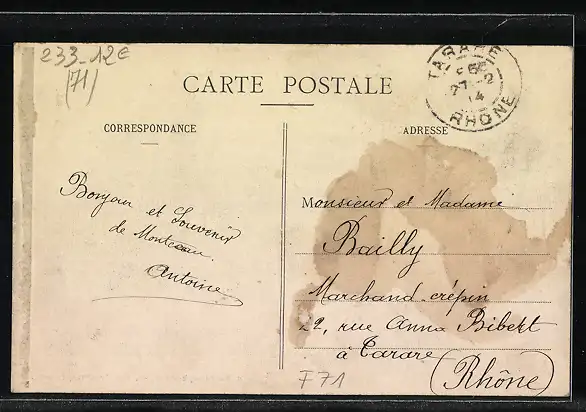 233-12e
(71)
CARTE POSTALE
TARARE
27-2
14
RHÔNE
CORRESPONDANCE
ADRESSE
Bonjour et Souvenir
de Montceau
Antoine
Monsieur et Madame
Bailly
Marchand-crépin
22, rue Anna Bibert
à Tarare
(Rhône)
F71